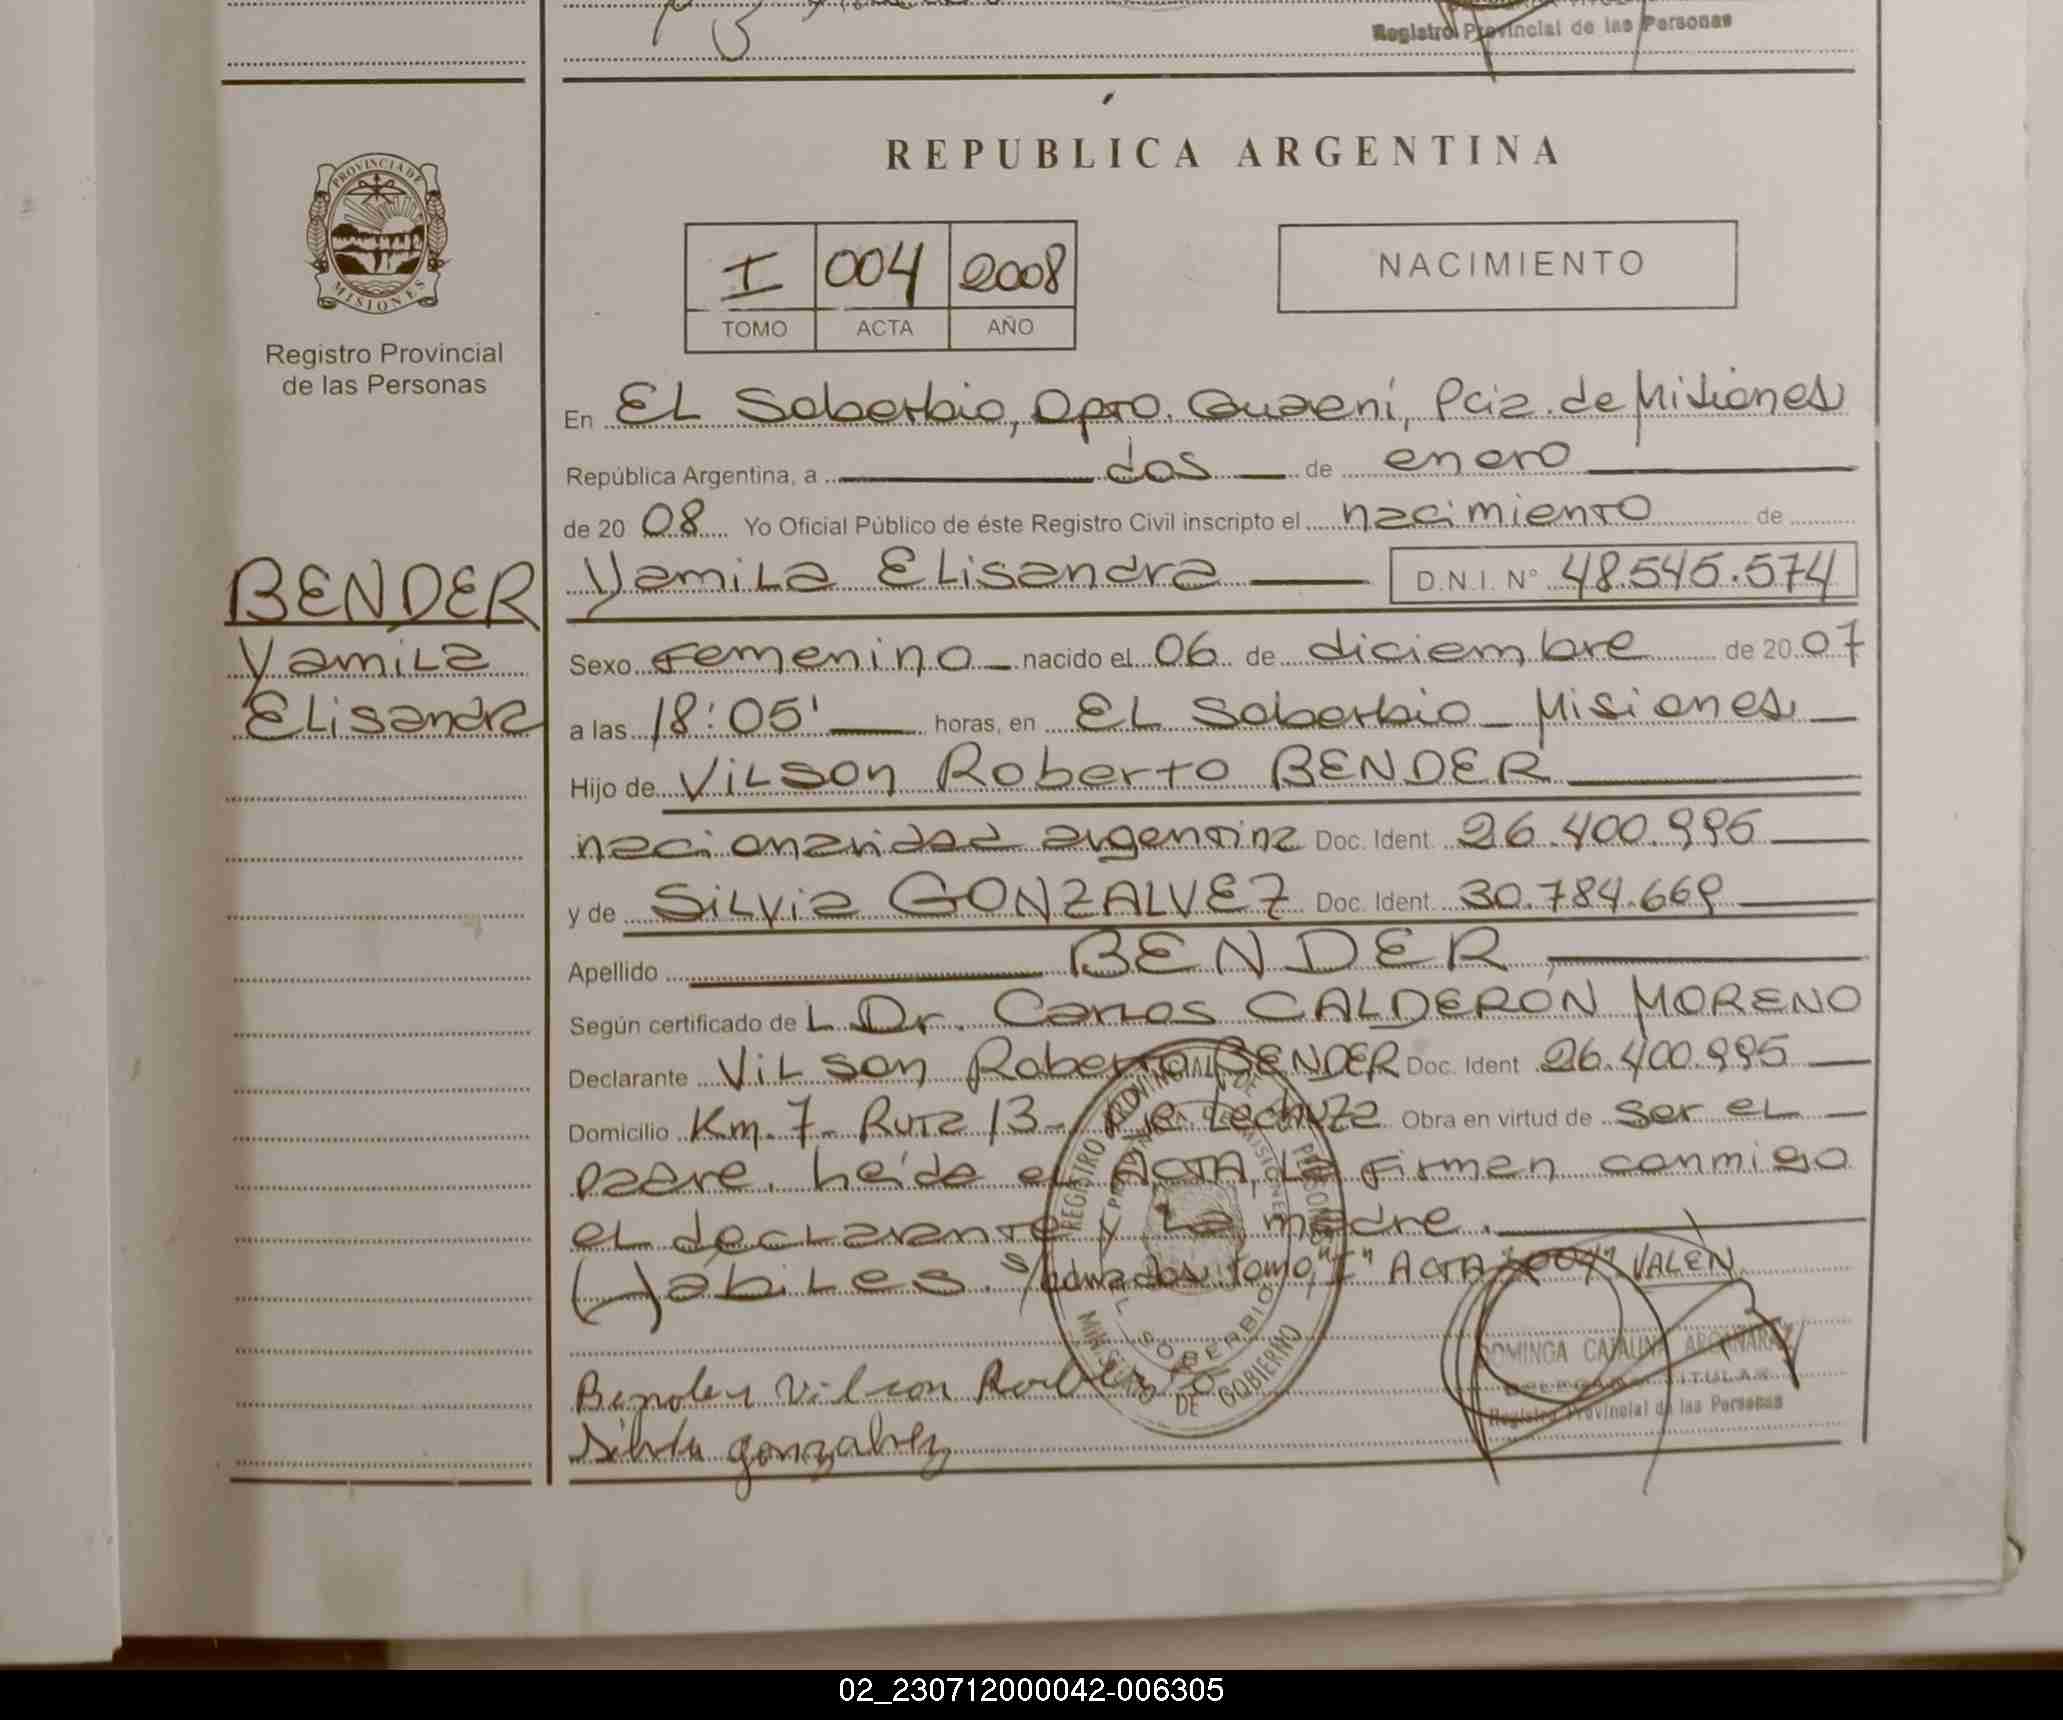 Registro Provincial de las Personas
REPUBLICA ARGENTINA
PROVINCIA DE
MISIONES
Registro Provincial
de las Personas
I 004 2008
TOMO ACTA AÑO
NACIMIENTO
En EL Soberbio, Dpto. Guaraní, Pcia. de Misiones
República Argentina, a dos de enero
de 2008 Yo Oficial Público de éste Registro Civil inscripto el nacimiento de
BENDER
Yamila
Elisandra
Yamila Elisandra D.N.I. Nº 48.545.574
Sexo Femenino nacido el 06 de diciembre de 2007
a las 18:05' horas, en EL Soberbio - Misiones
Hijo de Vilson Roberto BENDER
nacionalidad argentina Doc. Ident. 26.400.995
y de Silvia GONZALVEZ Doc. Ident. 30.784.669
Apellido BENDER
Según certificado de L Dr. Carlos CALDERÓN MORENO
Declarante Vilson Roberto BENDER Doc. Ident. 26.400.995
Domicilio Km. 7 - Ruta 13 - Pje Lechuza Obra en virtud de ser el
padre. Leída el ACTA, la firman conmigo
el declarante y la madre.
(-) ábiles. s/ tomo, "I" ACTA "004" VALEN
REGISTRO PROVINCIAL DE PERSONAS
MISIONES
EL SOBERBIO
MINISTERIO DE GOBIERNO
DOMINGA CATALINA
DELEGADA TITULAR
Registro Provincial de las Personas
Bender Vilson Roberto
Silvia gonzalvez
02_230712000042-006305